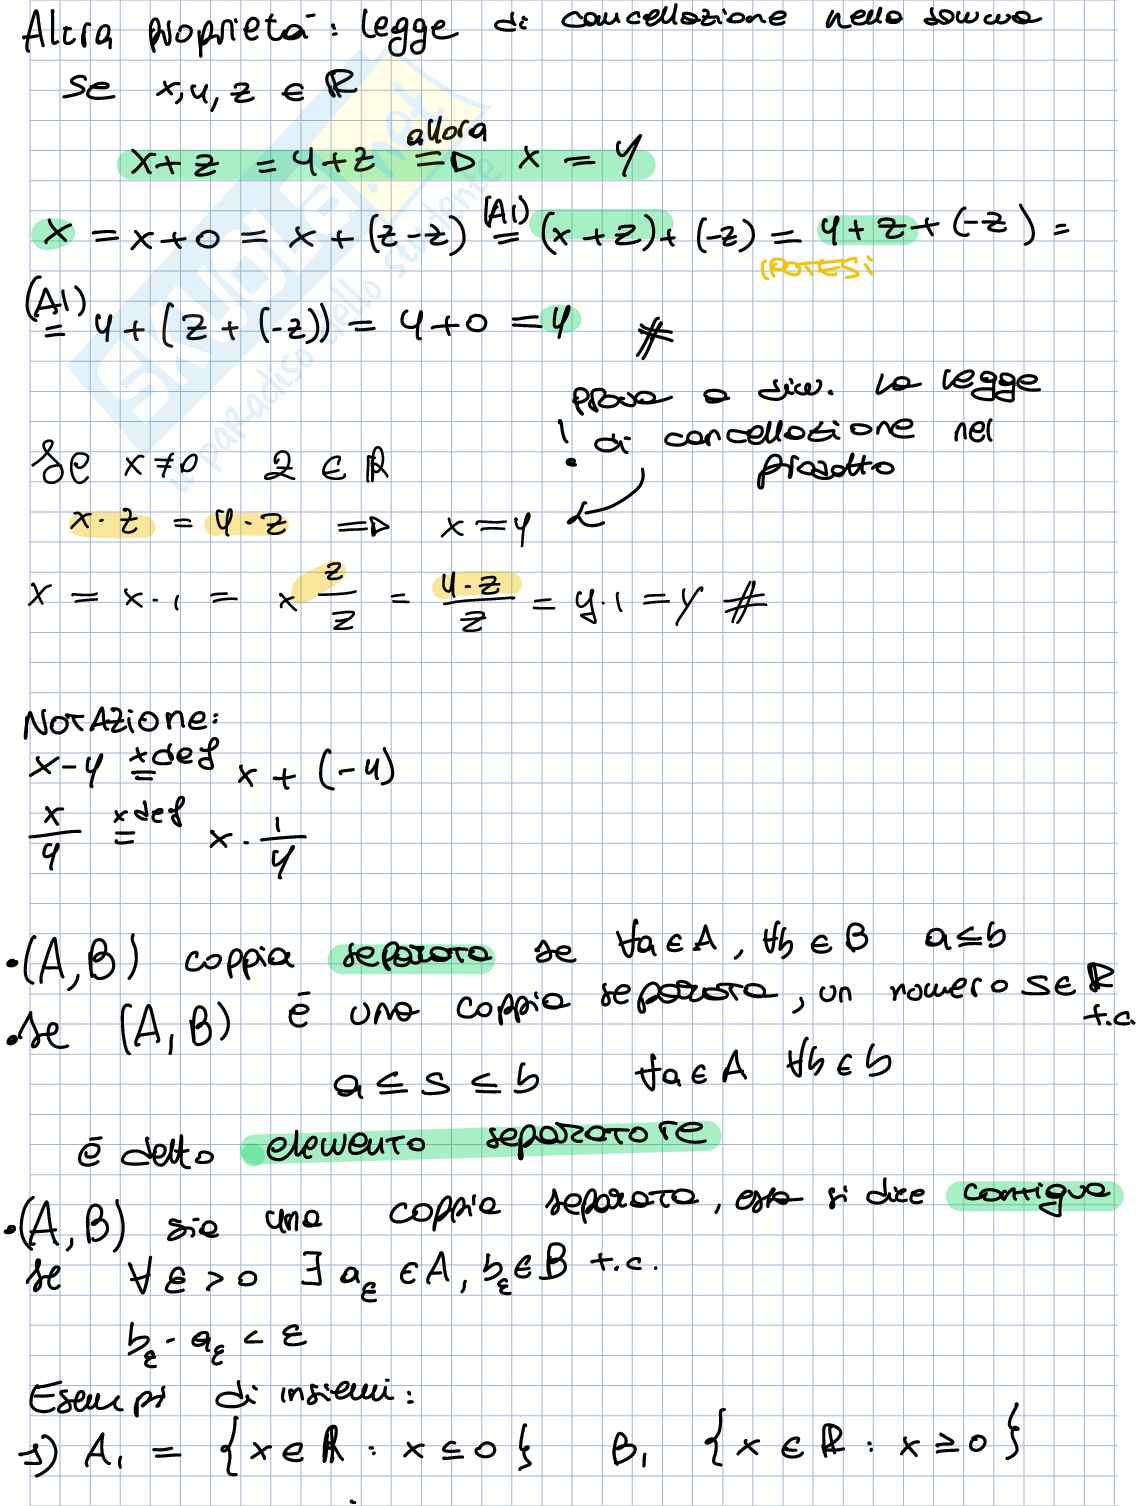 Altra proprietà: legge di cancellazione nella somma
Se x, y, z ∈ ℝ
x + z = y + z ⇒ allora x = y
x = x + 0 = x + (z - z) = (A1) (x + z) + (-z) = y + z + (-z) =
IPOTESI
(A1) = y + (z + (-z)) = y + 0 = y #
prova a dim. la legge
! di cancellazione nel
prodotto
Se x ≠ 0 z ∈ ℝ
x · z = y · z ⇒ x = y
x = x · 1 = x z/z = y · z/z = y · 1 = y #
NOTAZIONE:
x - y = x def x + (-y)
x/y = x def x · 1/y
• (A, B) coppia separata se ∀a ∈ A, ∀b ∈ B a ≤ b
• Se (A, B) è una coppia separata, un numero s ∈ ℝ t.c.
a ≤ s ≤ b ∀a ∈ A ∀b ∈ b
è detto elemento separatore
• (A, B) sia una coppia separata, essa si dice contigua
se ∀ ε > 0 ∃ aε ∈ A, bε ∈ B t.c.
bε - aε < ε
Esempi di insiemi:
1) A₁ = {x ∈ ℝ : x ≤ 0} B₁ {x ∈ ℝ : x ≥ 0}
SKUOLA.net
il paradiso dello studente